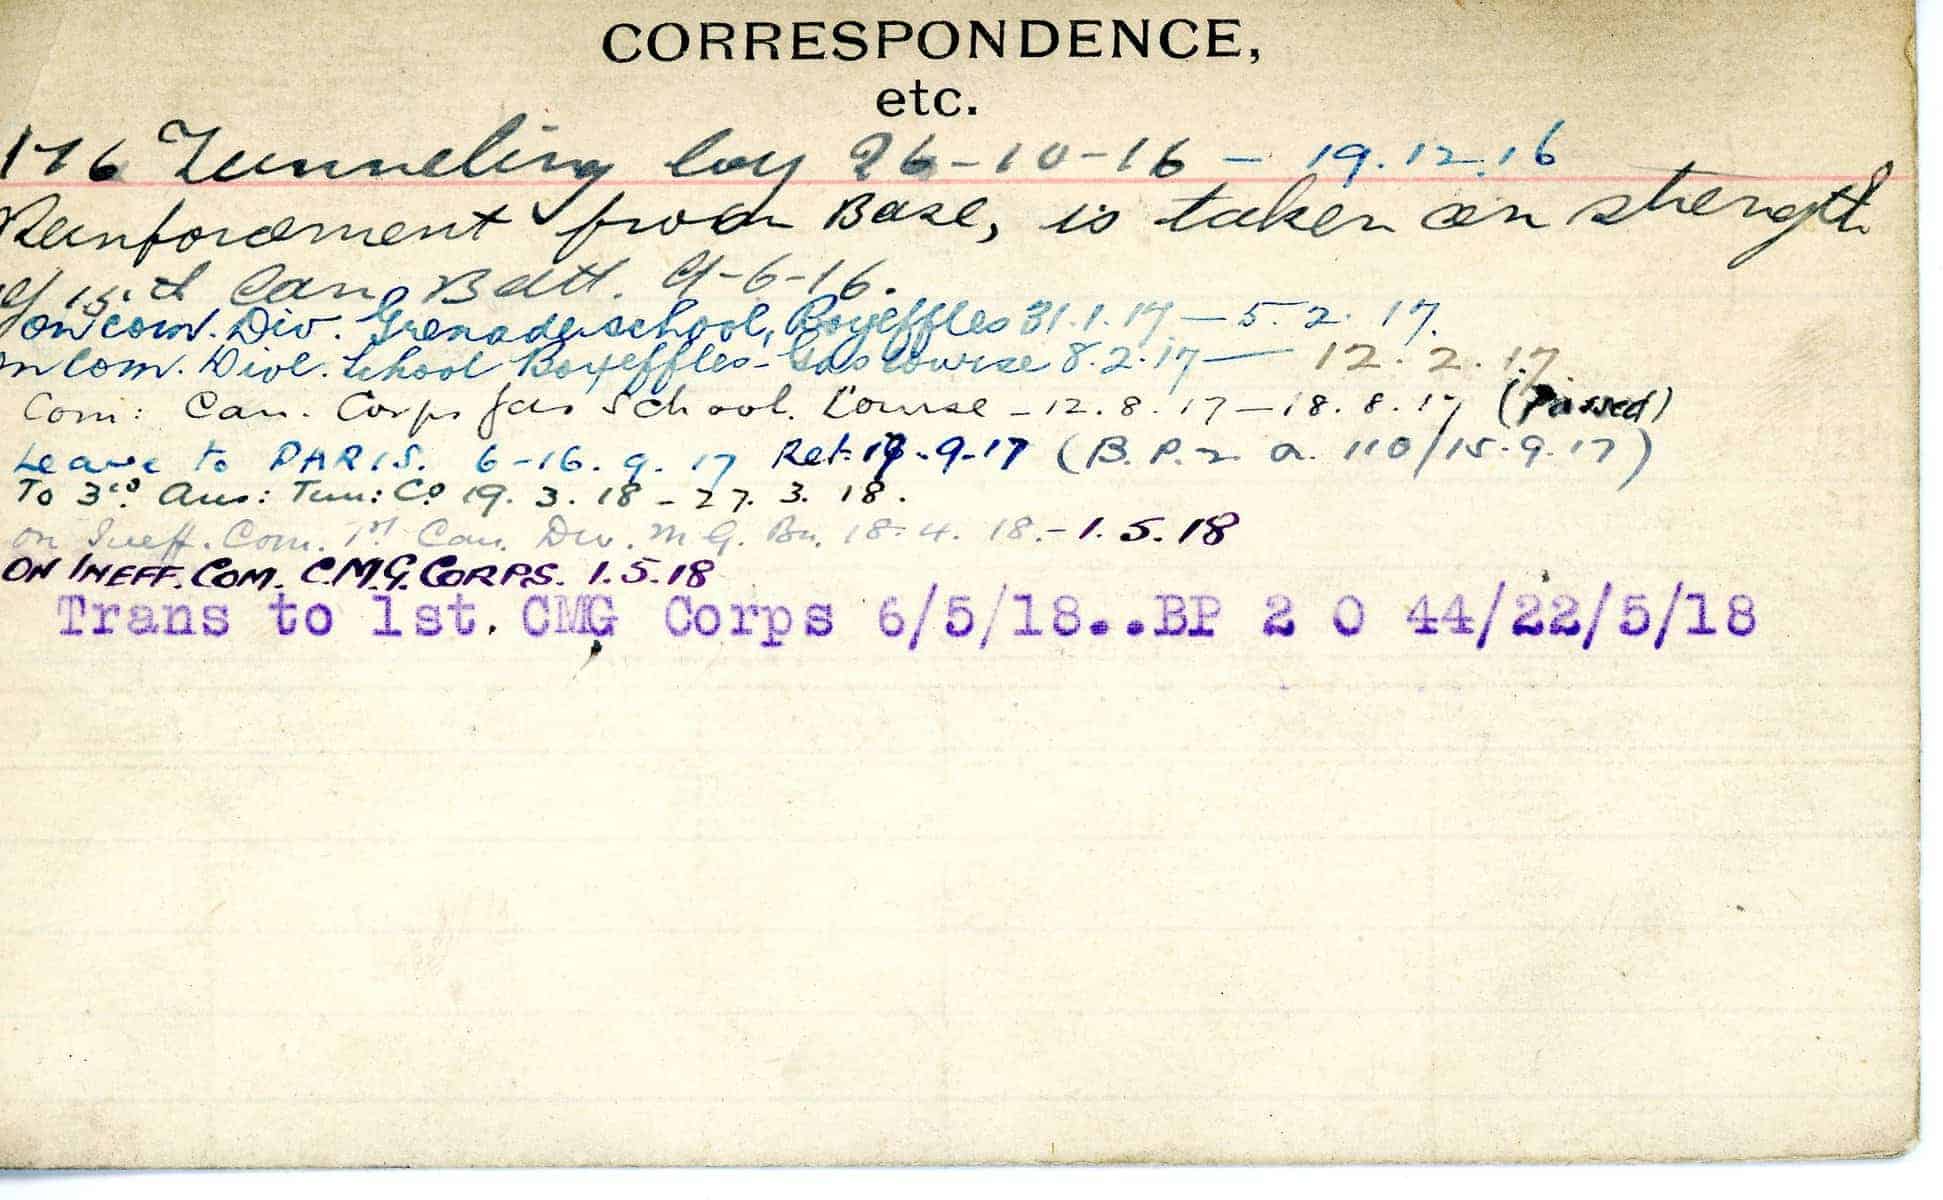 CORRESPONDENCE,
etc.
176 Tunneling Coy 26-10-16 - 19.12.16
Reinforcement from Base, is taken on strength
of 15th Can Batt. 9-6-16.
on com. Div. Grenade school, Boyeffles 31.1.17 - 5.2.17.
on Com. Divl. School Boyeffles - Gas course 8.2.17 - 12.2.17.
Com: Can. Corps Gas School. Course - 12.8.17 - 18.8.17 (Passed)
Leave to PARIS. 6-16.9.17 Ret. .9.17 (B.P.2. a. 110/15.9.17)
To 3rd Aus: Tun: Co 19.3.18 - 27.3.18.
on Ineff. Com. 1st Can. Div. M.G. Bn. 18.4.18. - 1.5.18
ON INEFF. COM. C.M.G. CORPS. 1.5.18
Trans to 1st. CMG Corps 6/5/18..BP 2 O 44/22/5/18